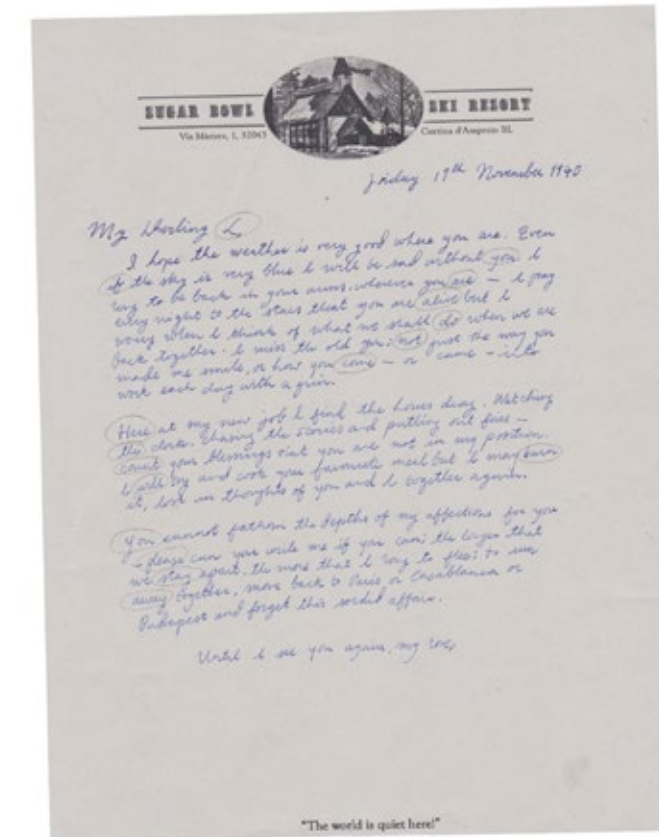 SUGAR BOWL SKI RESORT
Cortina d'Ampezzo BL
Friday 19th November 1940
My Darling L
I hope the weather is very good where you are. Even
if the sky is very blue I will be sad without you I
long to be back in your arms. wherever you are – I pray
every night to the stars that you are alive but I
worry when I think of what we shall do when we are
back together. I miss the old you: not just the way you
made me smile, or how you come – or came – into
work each day with a grin.
Here at my new job I find the hours drag. Watching
the clock. Chasing the stories and putting out fires –
count your blessings that you are not in my position.
I will try and cook your favourite meal but I may burn
it, lost in thoughts of you and I together again.
You cannot fathom the depths of my affections for you
– please can you write me if you can: the longer that
we stay apart, the more that I long to flee: to run
away together, move back to Paris or Casablanca or
Budapest and forget this sordid affair.
Until I see you again, my love,
"The world is quiet here!"